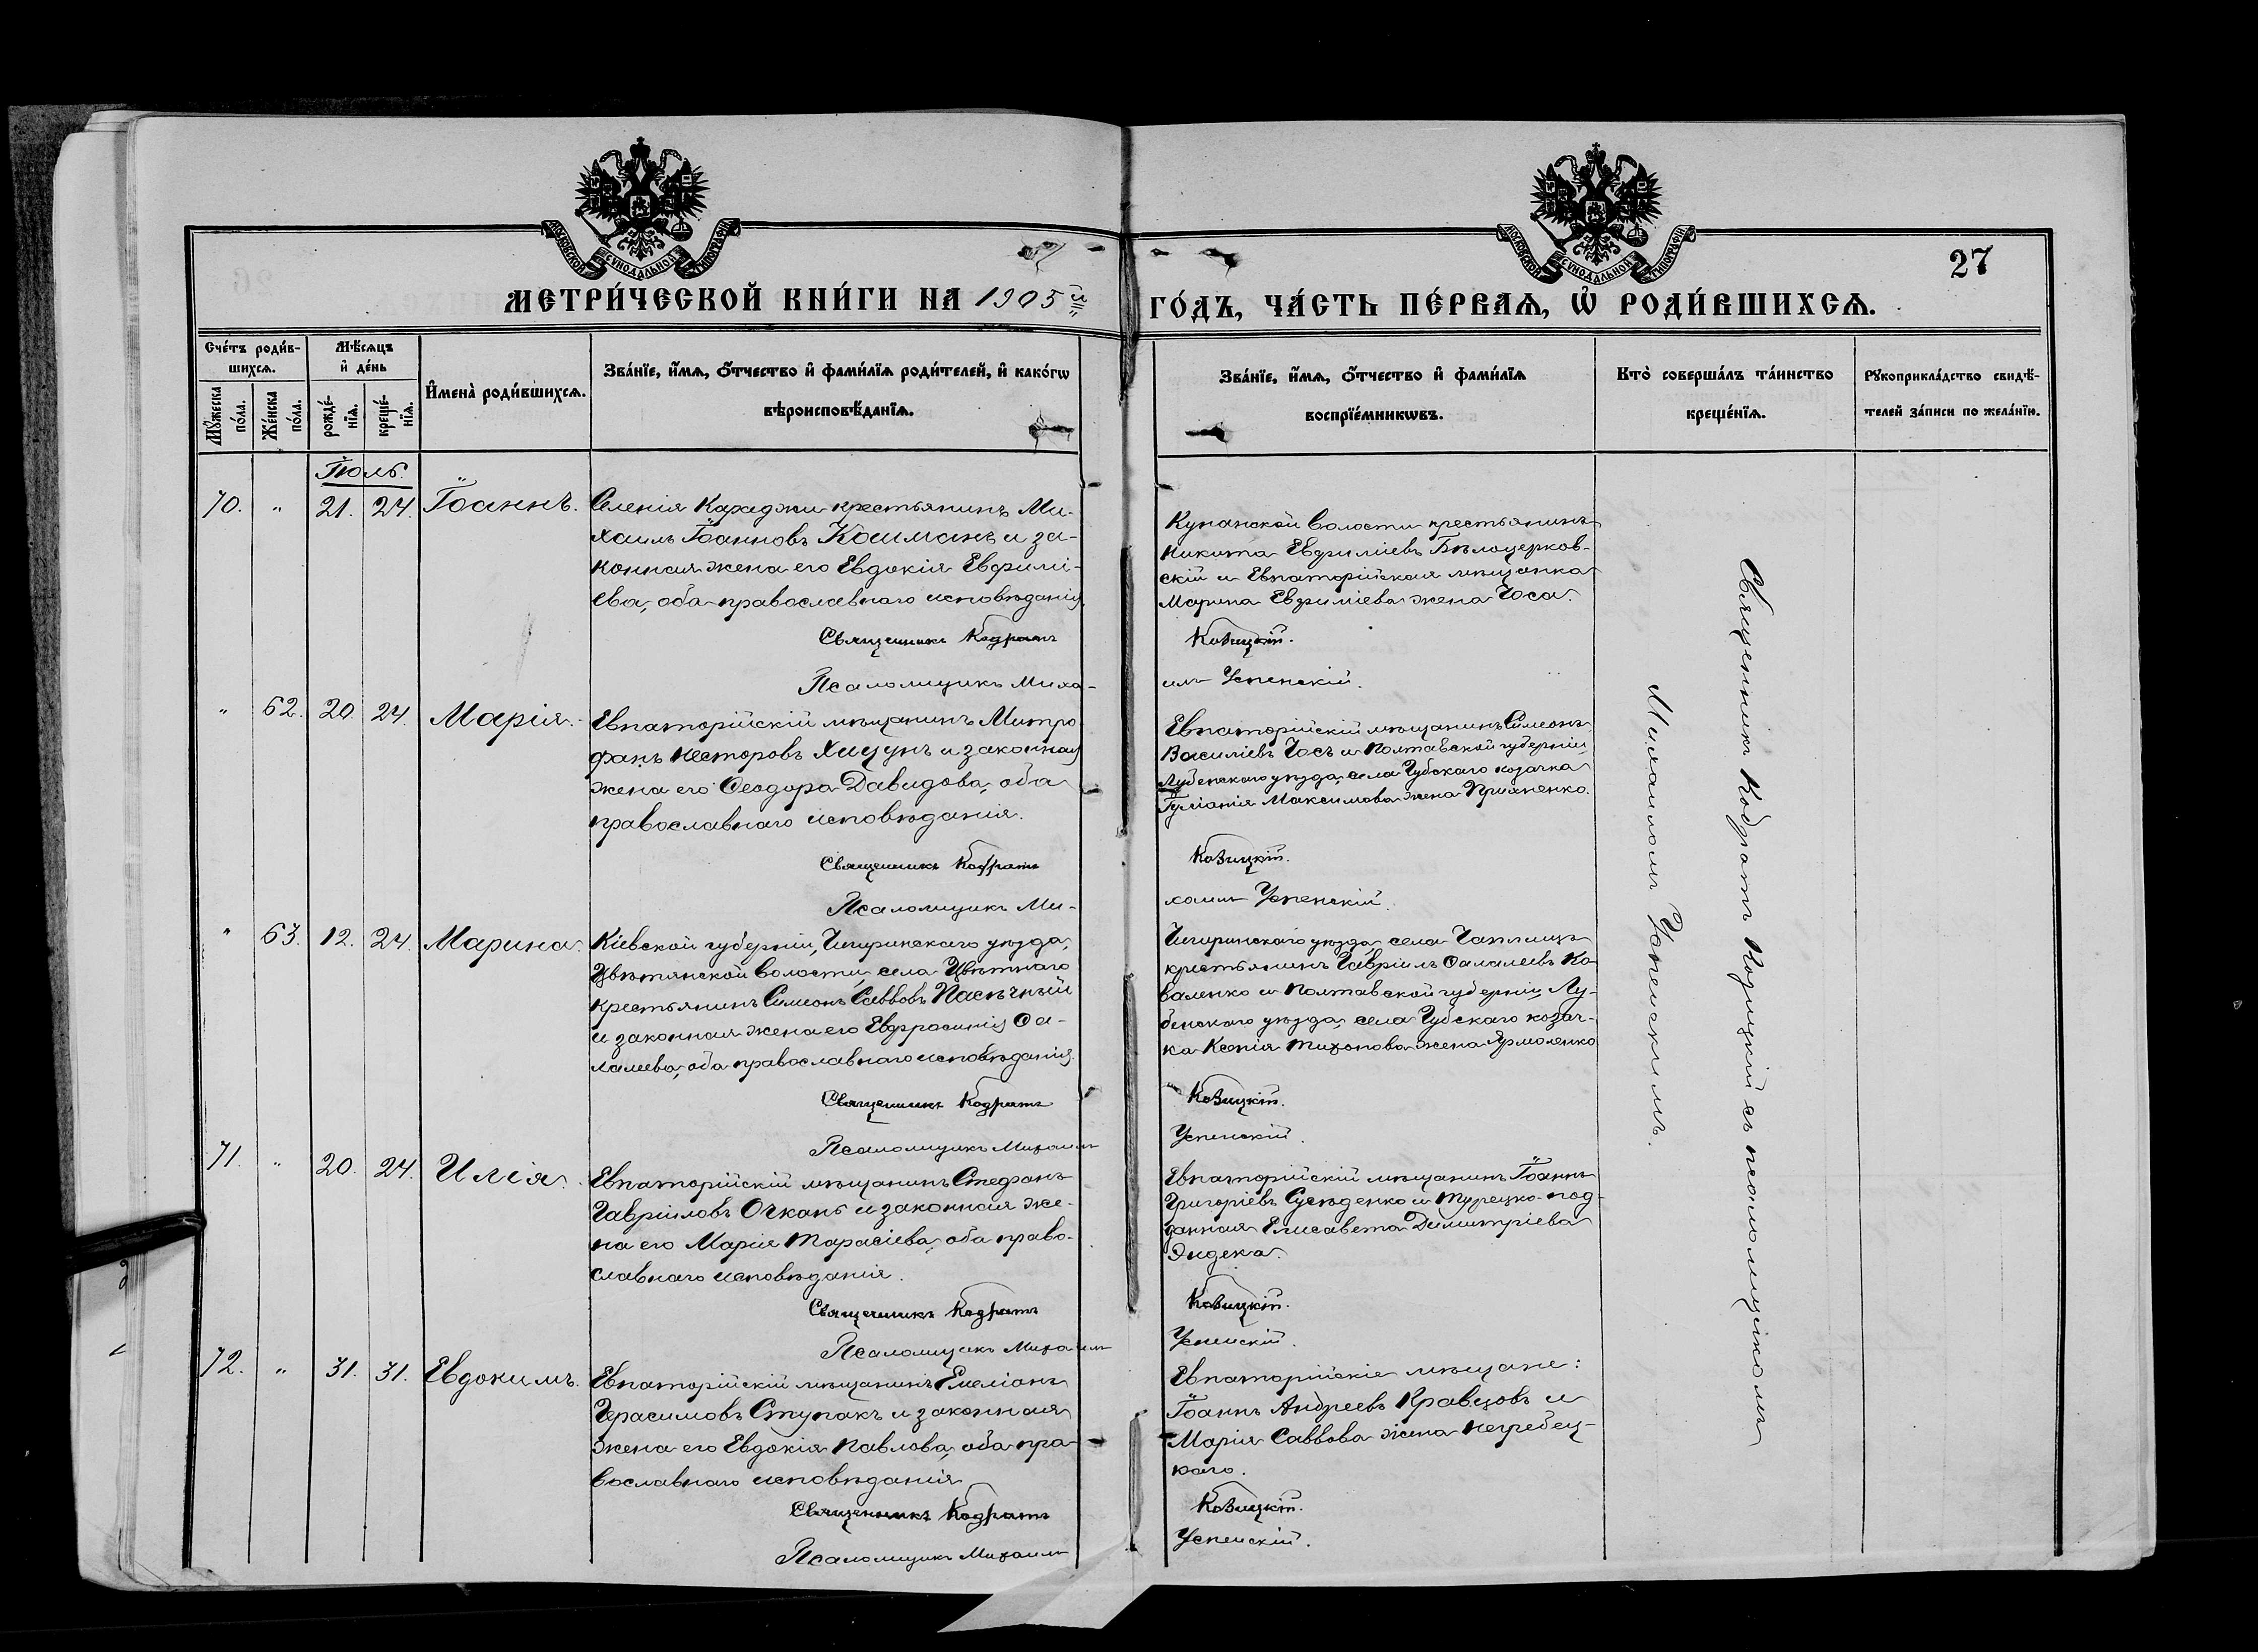 МОСКОВСКОЙ СѴНОДАЛЬНОЙ ТИПОГРАФІИ
МОСКОВСКОЙ СѴНОДАЛЬНОЙ ТИПОГРАФІИ
27
МЕТРИ́ЧЕСКОЙ КНИ́ГИ НА 1905 й
ГО́ДЪ, ЧА́СТЬ ПЕ́РВАЯ, Ѡ҆ РОДИ́ВШИХСЯ.
Сче́тъ роди́в-
шихсѧ.
Мꙋжеска по́ла.
Же́нска по́ла.
Мѣ́сѧцъ
и҆ де́нь
рожде́-
нїѧ.
креще́-
нїѧ.
И҆мена̀ роди́вшихсѧ.
Зва́нїе, и҆́мѧ, ѻ҆́тчество и҆ фами́лїѧ роди́телей, и҆ како́гѡ
вѣроисповѣ́данїѧ.
Зва́нїе, и҆́мѧ, ѻ҆́тчество и҆ фами́лїѧ
воспрїе́мникѡвъ.
Кто̀ соверша́лъ та́инство
креще́нїѧ.
Рꙋкоприкла́дство свидѣ́-
телей за́писи по жела́нїю.
Іюль.
70. " 21. 24. Іоаннъ.
Селенія Караджи крестьянинъ Ми-
хаилъ Іоанновъ Кошманъ и за-
конная жена его Евдокія Евфимі-
ева, оба православнаго исповѣданія.
Священникъ Кодратъ
Псаломщикъ Миха-
Купанской волости крестьянинъ
Никита Евфиміевъ Бѣлоцерков-
скій и Евпаторійская мѣщанка
Марина Евфиміева жена Чоса.
Ковицкій.
илъ Успенскій.
" 62. 20. 24. Марія.
Евпаторійскій мѣщанинъ Митро
фанъ Несторовъ Хицунъ и законная
жена его Ѳеодора Давидова, оба
православнаго исповѣданія.
Священникъ Кодратъ
Псаломщикъ Ми-
Евпаторійскій мѣщанинъ Симеонъ
Василіевъ Чосъ и Полтавской губерніи
Лубенскаго уѣзда, села Чубскаго козачка
Іуліанія Максимова жена Прияненко.
Ковицкій.
хаилъ Успенскій.
" 63. 12. 24. Марина.
Кіевской губерніи, Чигиринскаго уѣзда,
Цвѣтянской волости, села Цвѣтнаго
крестьянинъ Симеонъ Саввовъ Пасѣчный
и законная жена его Евфросинія Ѳа-
лалеева, оба православнаго исповѣданія.
Священникъ Кодратъ
Псаломщикъ Михаилъ
Чигиринскаго уѣзда, села Чаплищъ
крестьянинъ Гавріилъ Ѳалалеевъ Ко-
валенко и Полтавской губерніи, Лу-
бенскаго уѣзда, села Чубскаго козач-
ка Ксенія Тихонова жена Ярмоленко
Ковицкій.
Успенскій.
71. " 20. 24. Илія.
Евпаторійскій мѣщанинъ Стефанъ
Гавріиловъ Очкань и законная же-
на его Марія Тарасіева, оба право-
славнаго исповѣданія.
Священникъ Кодратъ
Псаломщикъ Михаилъ
Евпаторійскій мѣщанинъ Іоаннъ
Григоріевъ Сусѣденко и турецко-под-
данная Елисавета Димитріева
Эндека.
Ковицкій.
Успенскій.
72. " 31. 31. Евдокимъ.
Евпаторійскій мѣщанинъ Емеліанъ
Герасимовъ Ступакъ и законная
жена его Евдокія Павлова, оба пра-
вославнаго исповѣданія
Священникъ Кодратъ
Псаломщикъ Михаилъ
Евпаторійскіе мѣщане:
Іоаннъ Андреевъ Кравцовъ и
Марія Саввова жена Негребец-
каго.
Ковицкій.
Успенскій.
Священникъ Кодратъ Ковицкій съ псаломщикомъ
Михаиломъ Успенскимъ.